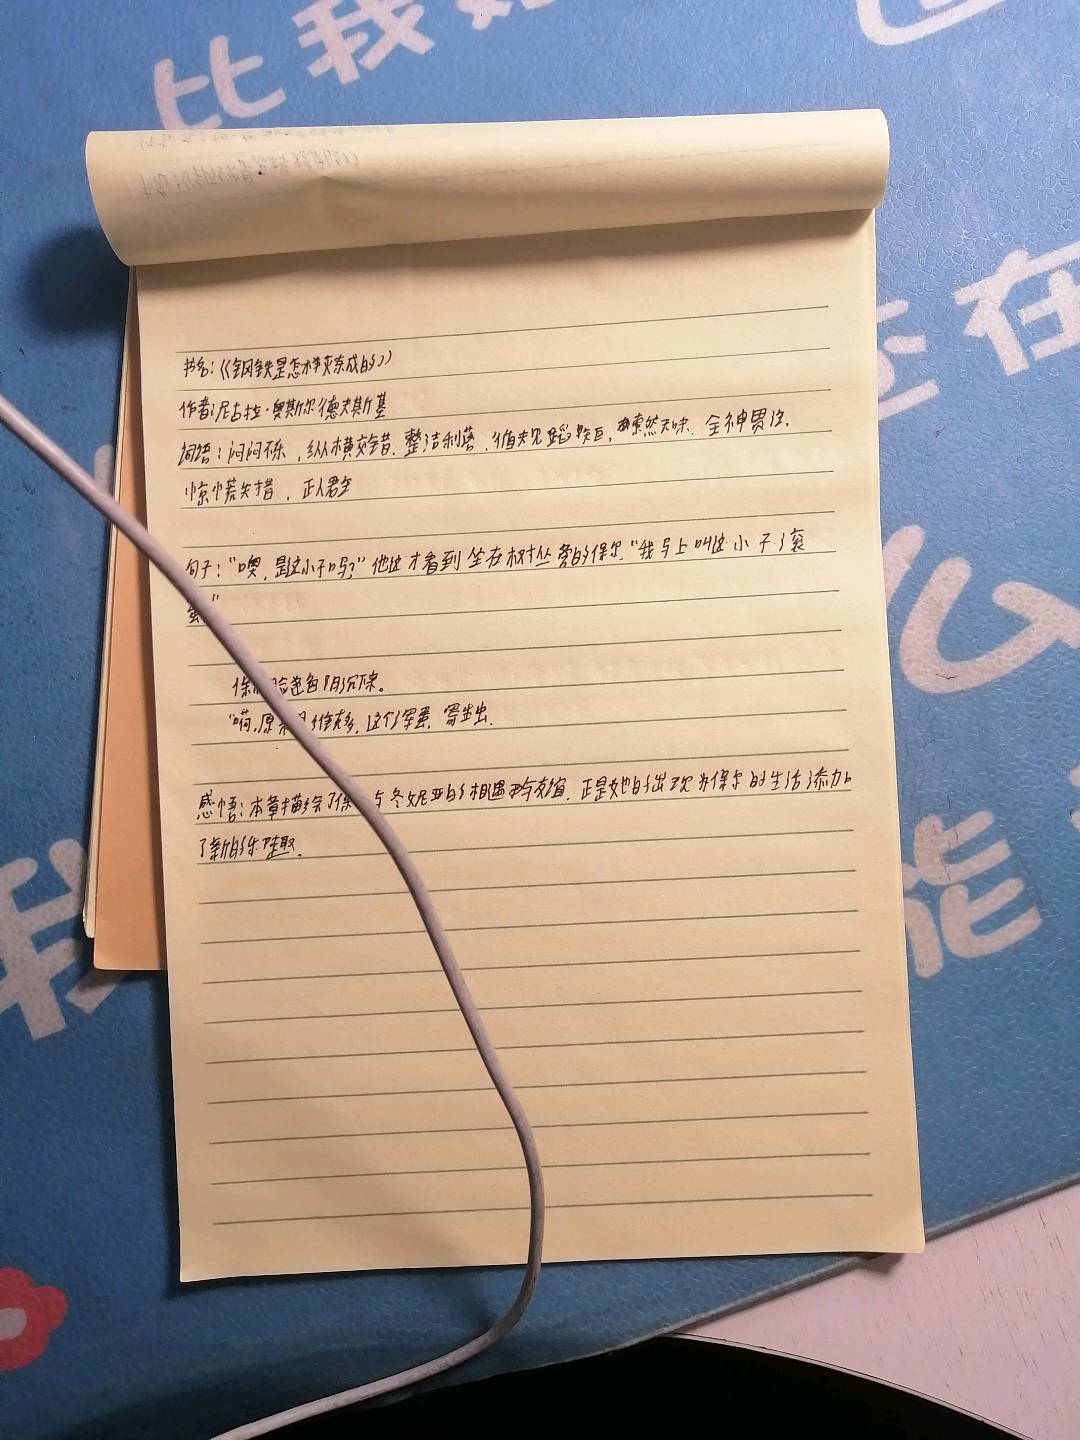 比我
在
么
我
能
书名:《钢铁是怎样炼成的》
作者:尼古拉·奥斯尔德夫斯基
词语:闪闪烁,纵横交错、整洁利落、循规蹈矩,索然无味、全神贯注、
惊慌失措,正人君子
句子:“噢,是这小子吗?”他这才看到坐在树丛旁的保尔,“我马上叫这小子滚
蛋”
保 脸色阴沉下来。
“嗬,原来是修太多,这个浑蛋,寄生虫.
感悟:本章描绘了保 与冬妮亚的相遇与友谊,正是她的出现为保尔的生活添加
了新的乐趣.